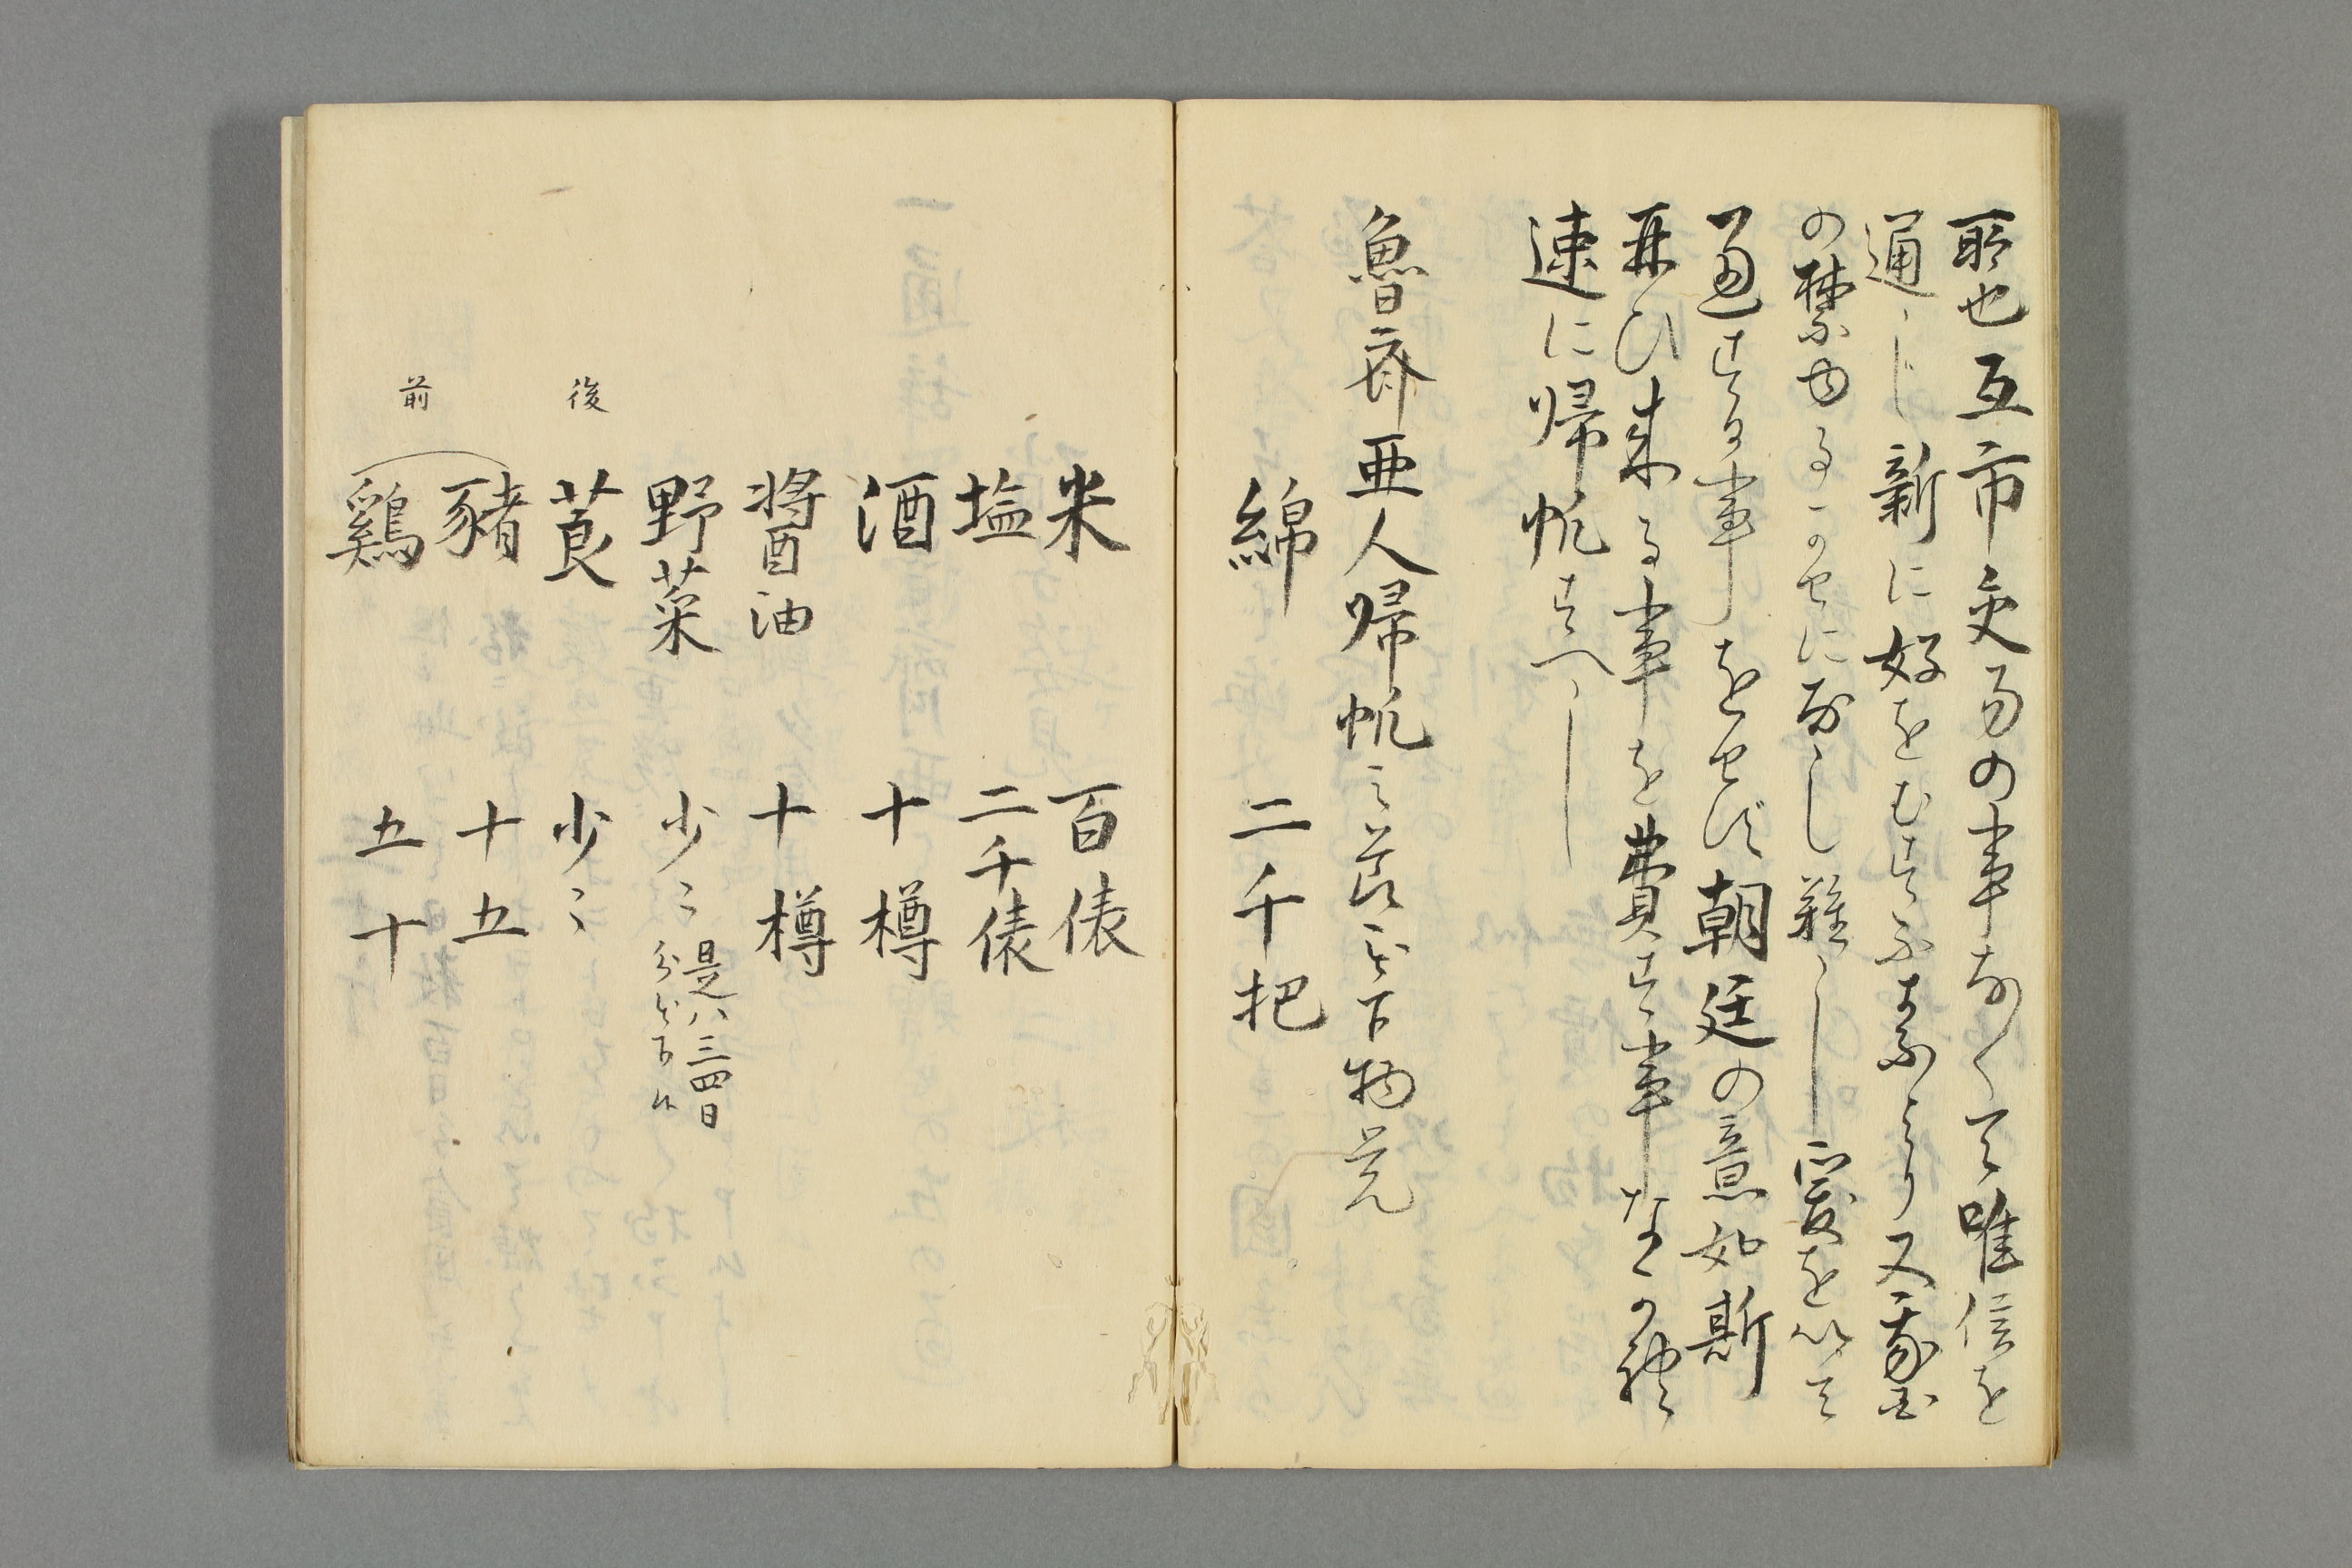 所也互市交易の事なくて唯信を
通し新に好をむすふ素より又我国
の禁ゆるかせに成し難し爰を以て
通する事をせす朝廷の意如斯
再ひ来る事を費す事なかれ
速に帰帆すへし
魯斉亜人帰帆之節被下物覚
綿 二千把
米 百俵
塩 二千俵
酒 十樽
醤油 十樽
野菜 少〻 是ハ三四日
分被下候
後 莨 少〻
前 豬 十五
鶏 五十